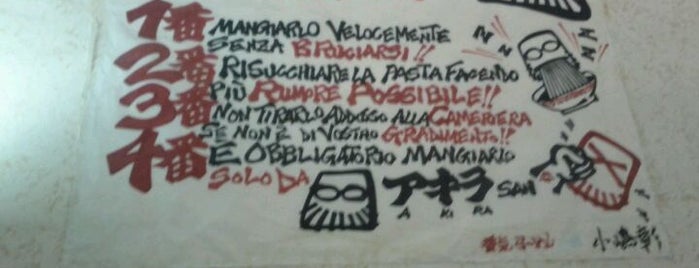 1番 MANGIARLO VELOCEMENTE
SENZA BRUCIARSI!!
2番 RISUCCHIARE LA PASTA FACENDO
3番 PIÙ RUMORE POSSIBILE!!
NON TIRARLO ADDOSSO ALLA CAMERIERA
SE NON È DI VOSTRO GRADIMENTO!!
4番 È OBBLIGATORIO MANGIARLO
SOLO DA アキラ SAN
A KI RA